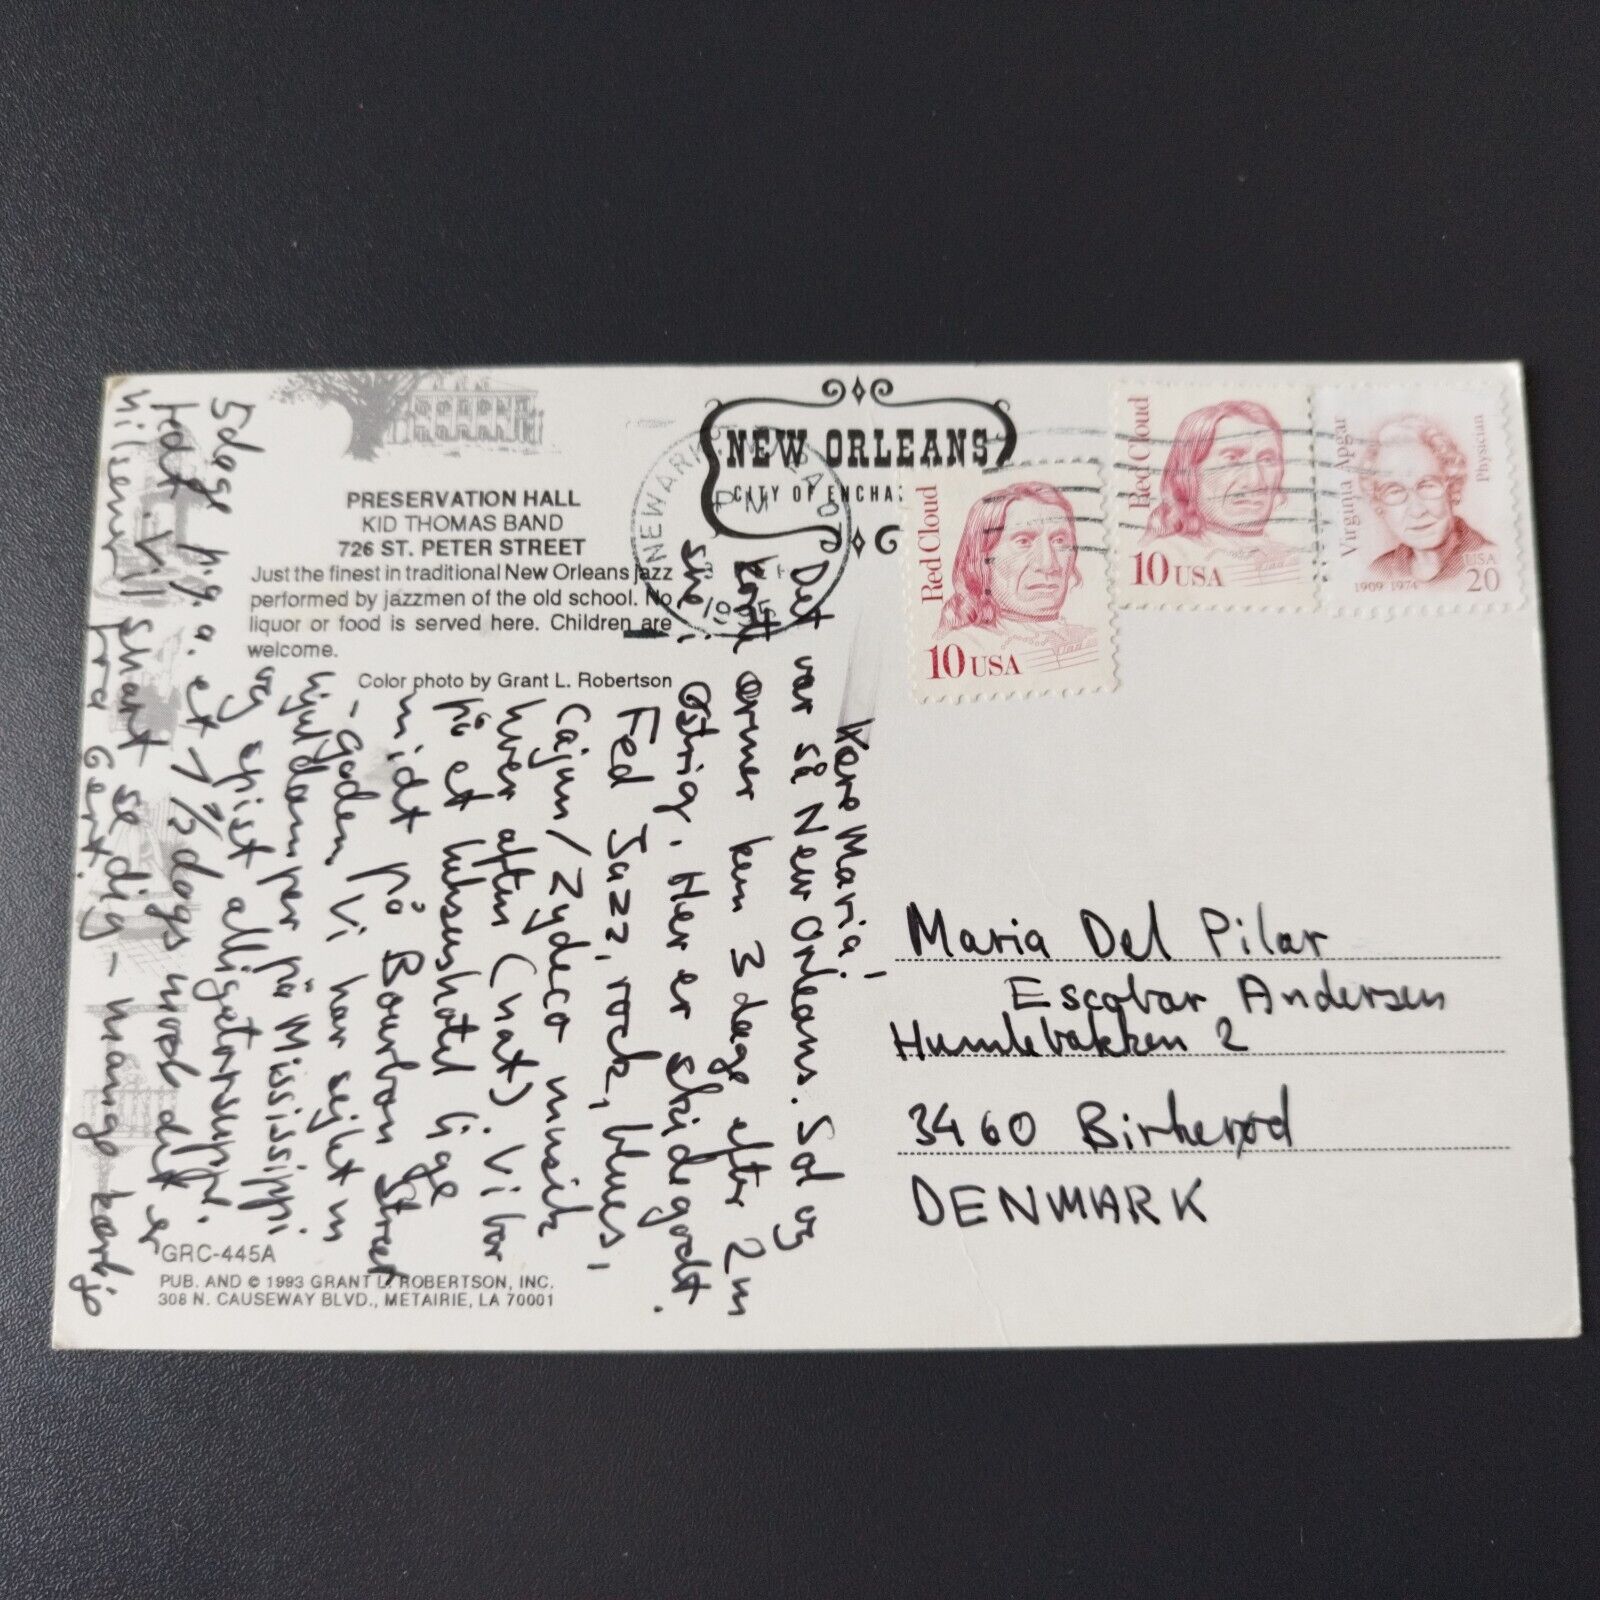 NEW ORLEANS
CITY OF ENCHA
NEWARK
PM
PRESERVATION HALL
KID THOMAS BAND
726 ST. PETER STREET
Just the finest in traditional New Orleans jazz
performed by jazzmen of the old school. No
liquor or food is served here. Children are
welcome.
Color photo by Grant L. Robertson
Red Cloud
10 USA
Red Cloud
10 USA
Virginia Apgar
Physician
1909 1974
USA
20
Kære Maria!
Det var så New Orleans. Sol og
korte ærmer kun 3 dage efter 2 m
sne i Østrig. Her er skidegodt.
Fed Jazz, rock, blues,
Cajun/Zydeco musik
hver aften (nat). Vi bor
på et luksushotel lige
midt på Bourbon Street
-gaden. Vi har sejlet m
hjuldamper på Mississippi
og spist alligatorsuppe.
5 dage p.g.a. et 1/2 dogs
fedt. Vil snart se dig - mange kærlige
hilsner fra Gert.
Maria Del Pilar
Escobar Andersen
Humlebakken 2
3460 Birkerød
DENMARK
GRC-445A
PUB. AND © 1993 GRANT L. ROBERTSON, INC.
308 N. CAUSEWAY BLVD., METAIRIE, LA 70001